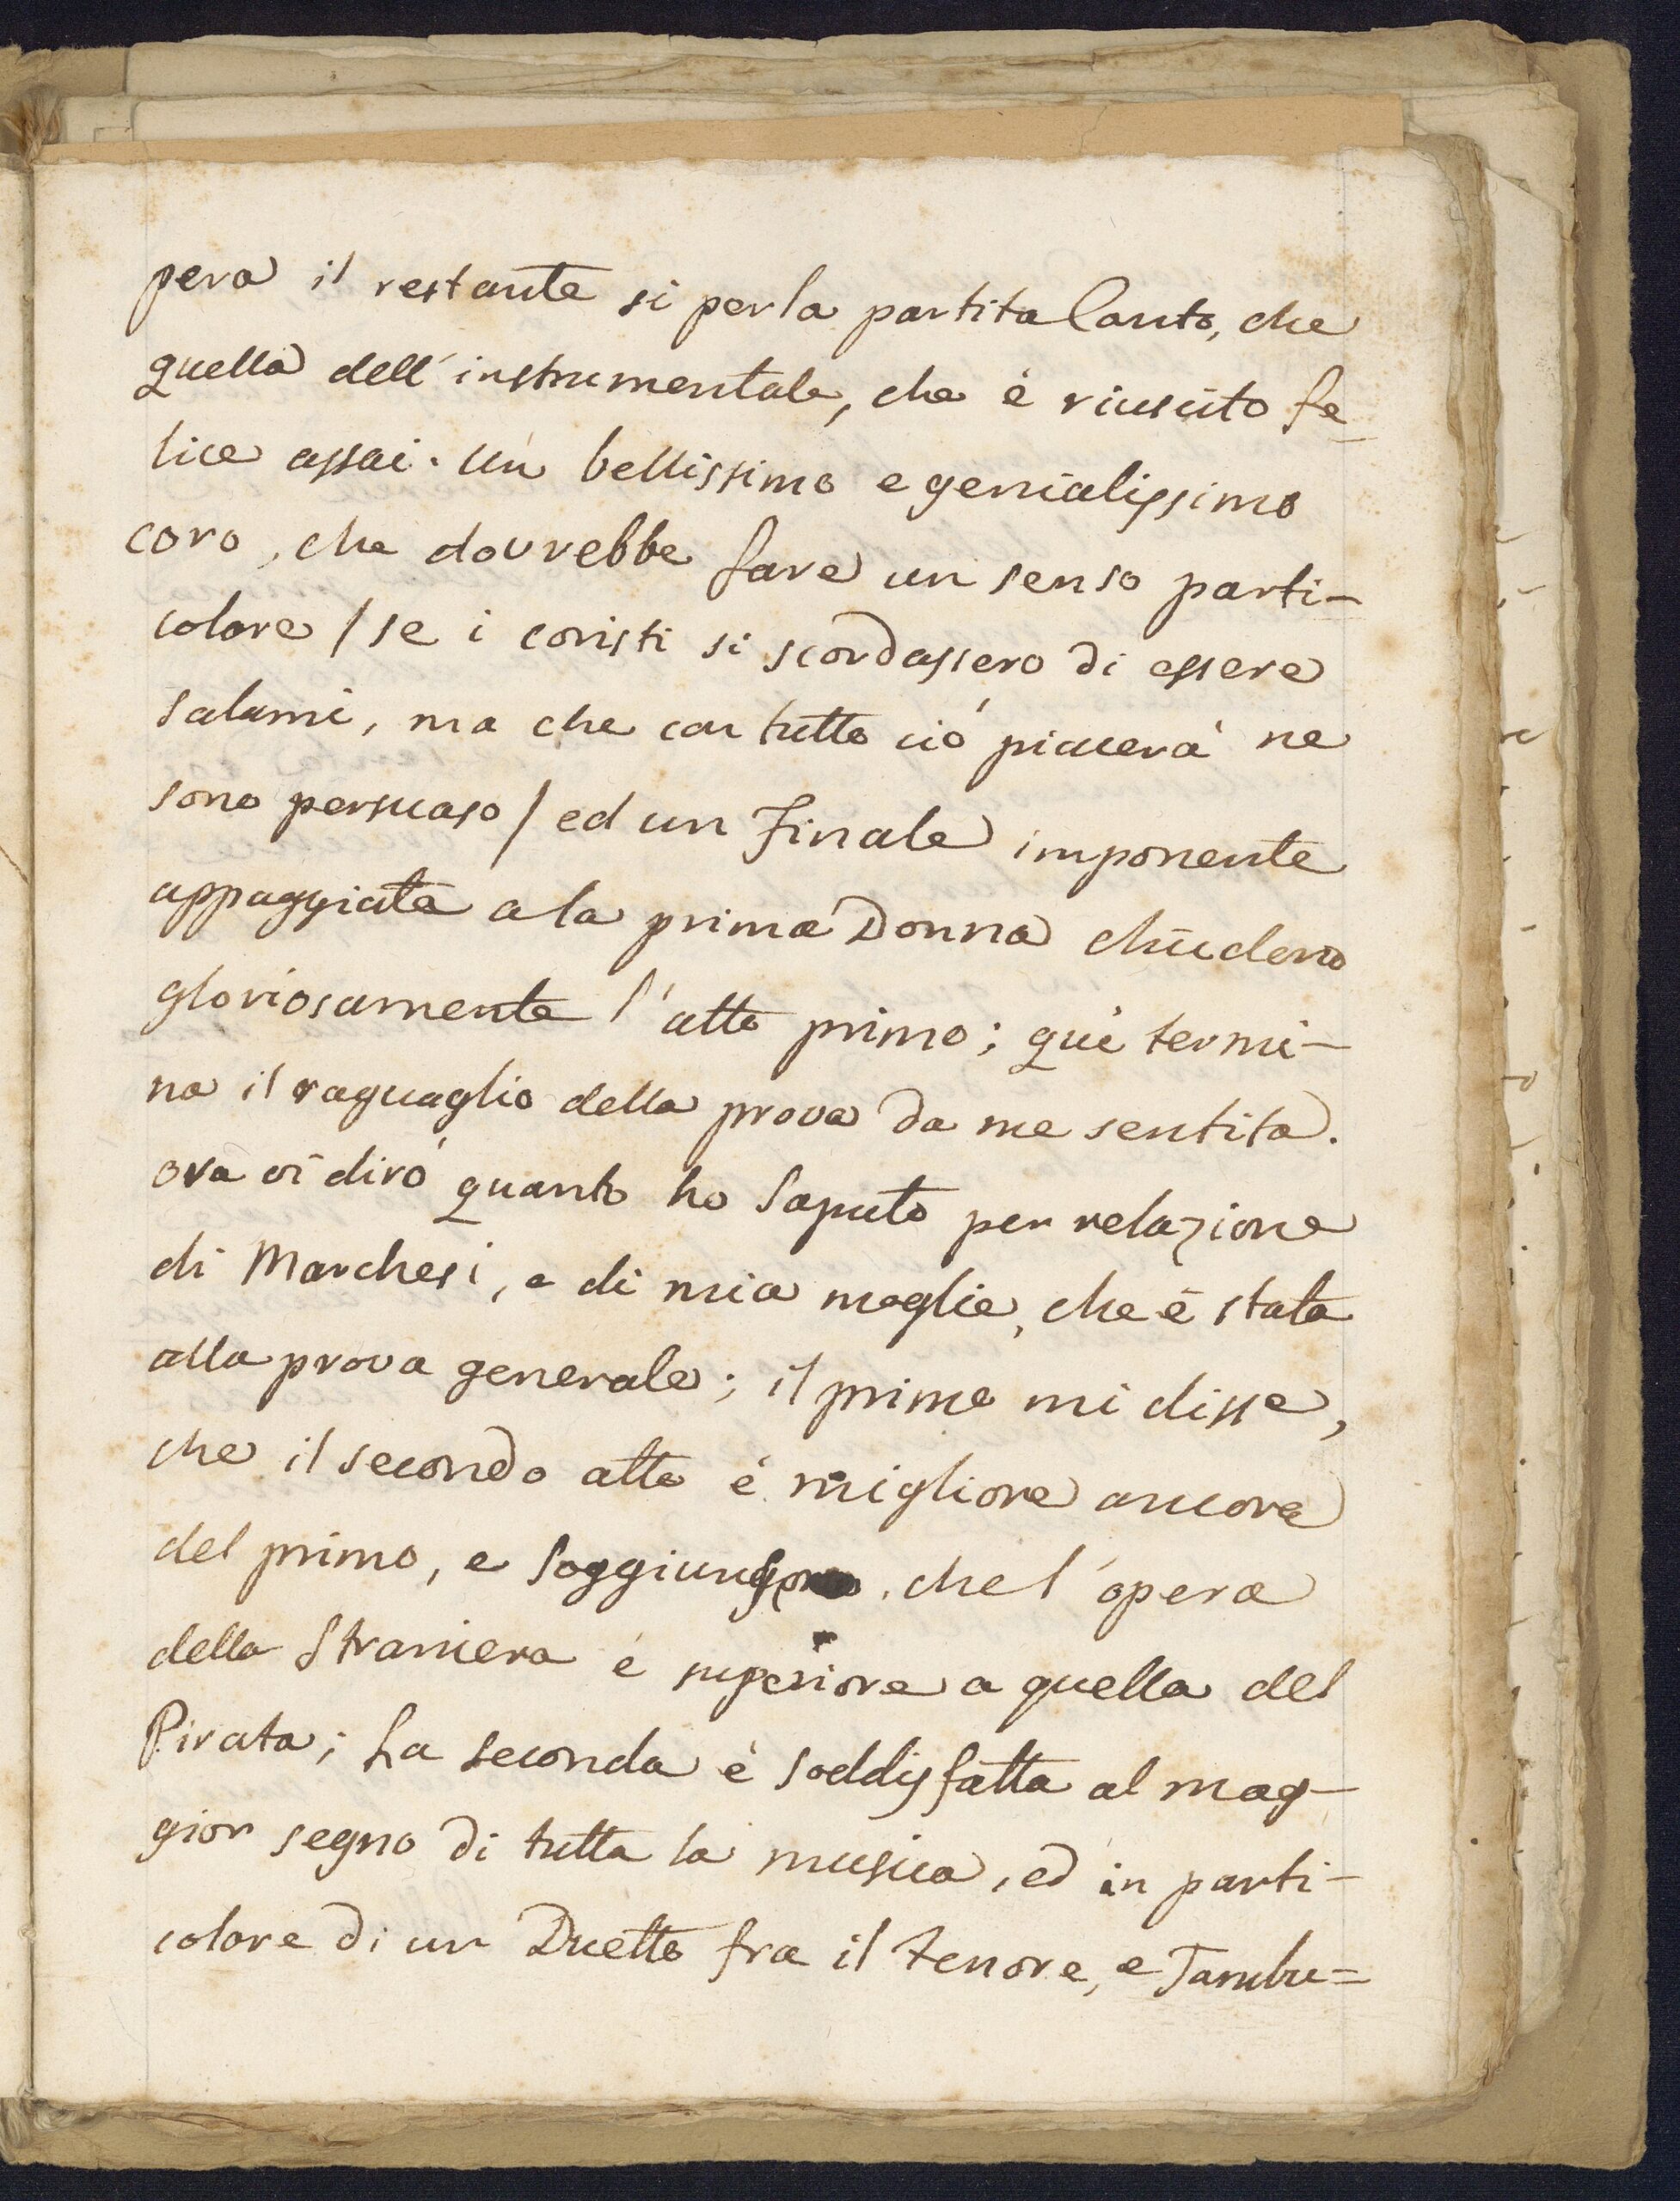 pera il restante si per la partita Canto, che
quella dell'instrumentale, che è riuscito fe-
lice assai. Un bellissimo e genialissimo
coro, che dovrebbe fare un senso parti-
colare / se i coristi si scordassero di essere
salami, ma che con tutto ciò piacerà ne
sono persuaso / ed un Finale imponente
appoggiato a la prima Donna chiudono
gloriosamente l'atto primo; quì termi-
na il raguaglio della prova da me sentita.
ora vi dirò quanto ho saputo per relazione
di Marchesi, e di mia moglie, che è stata
alla prova generale; il primo mi disse,
che il secondo atto è migliore ancora
del primo, e che l'opera
della Straniera è superiore a quella del
Pirata; La seconda è soddisfatta al mag-
gior segno di tutta la musica, ed in parti-
colare di un Duetto fra il tenore, e Tambu=